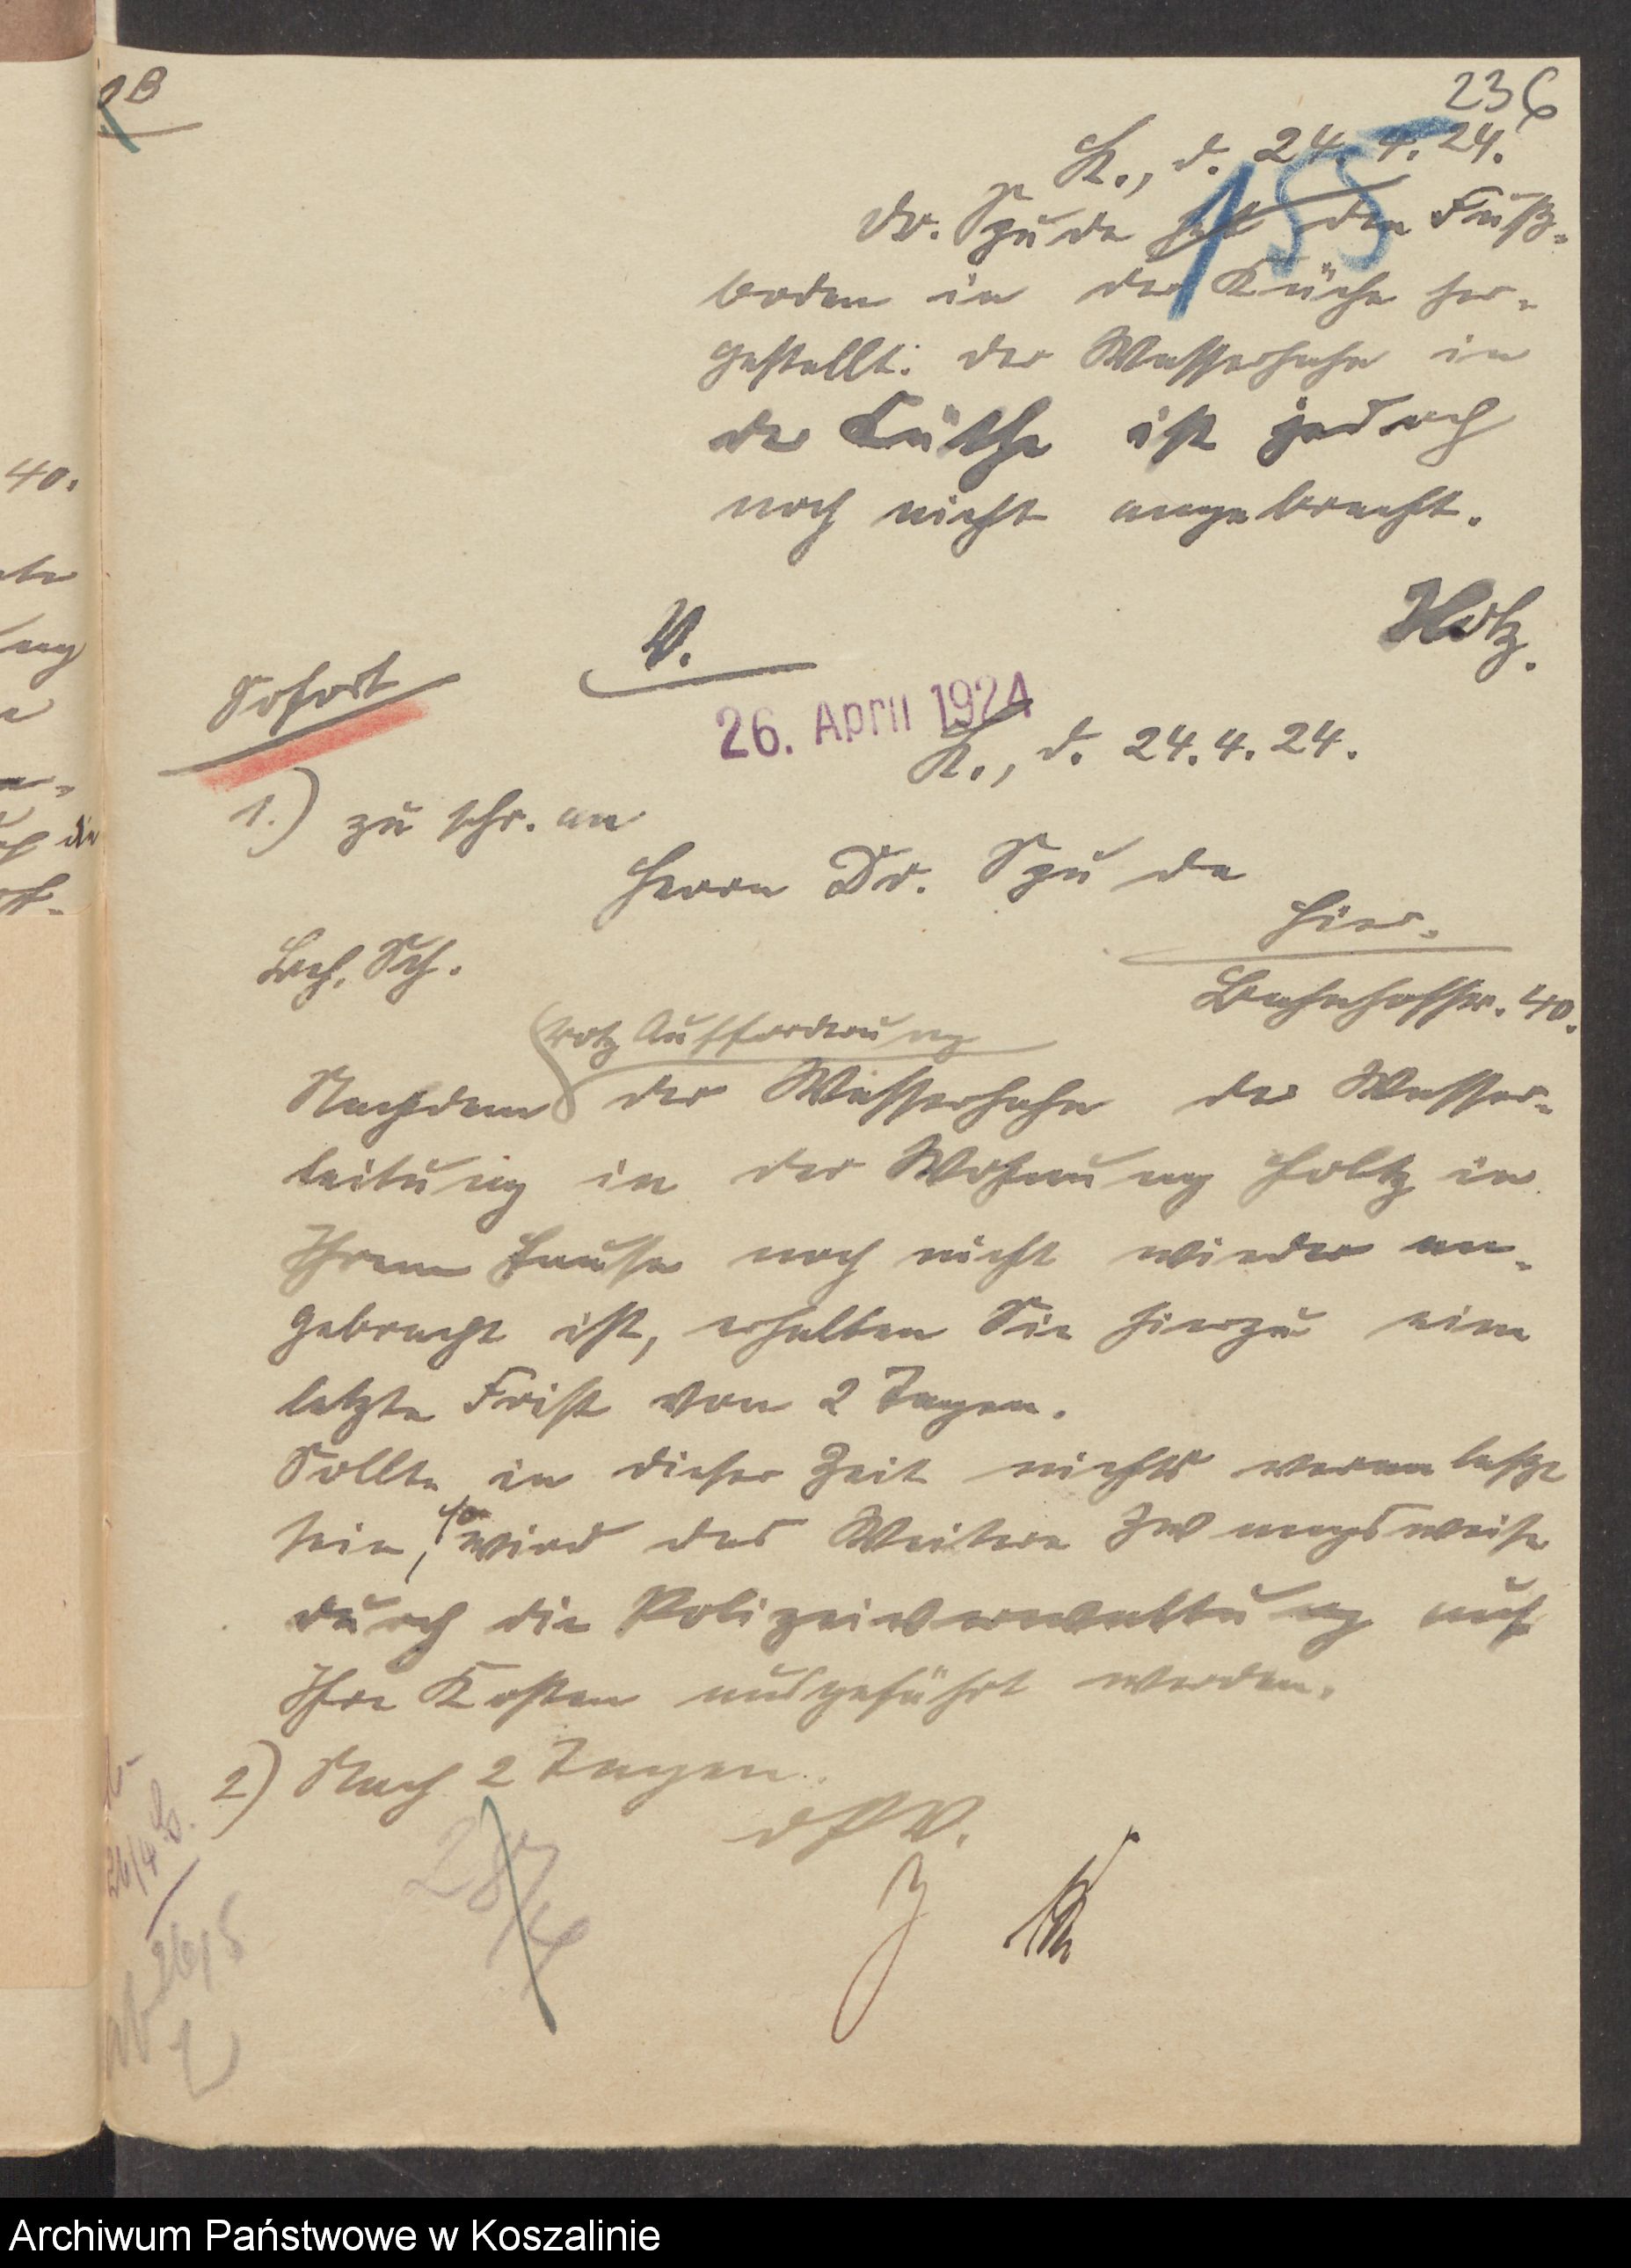 B
236
K., d. 24. 4. 24.
155
Dr. Spude hat den Fuß-
boden in der Küche her-
gestellt. der Wasserhahn in
der Küche ist jedoch
noch nicht angebracht.
V.
Sofort
26. April 1924
K., d. 24. 4. 24.
1.) zu schr. an
Herrn Dr. Spude
hier.
Bahnhofstr. 40.
trotz Aufforderung
Nachdem der Wasserhahn der Wasser-
leitung in der Wohnung Holtz in
Ihrem Hause noch nicht wieder an-
gebracht ist, erhalten Sie hierzu eine
letzte Frist von 2 Tagen.
Sollte in dieser Zeit nichts veranlaßt
sein, so wird das Weitere zwangsweise
durch die Polizeiverwaltung auf
Ihre Kosten ausgeführt werden.
2) Nach 2 Tagen.
dPV.
28/4
26/4
ab 26/
40.
die
Archiwum Państwowe w Koszalinie